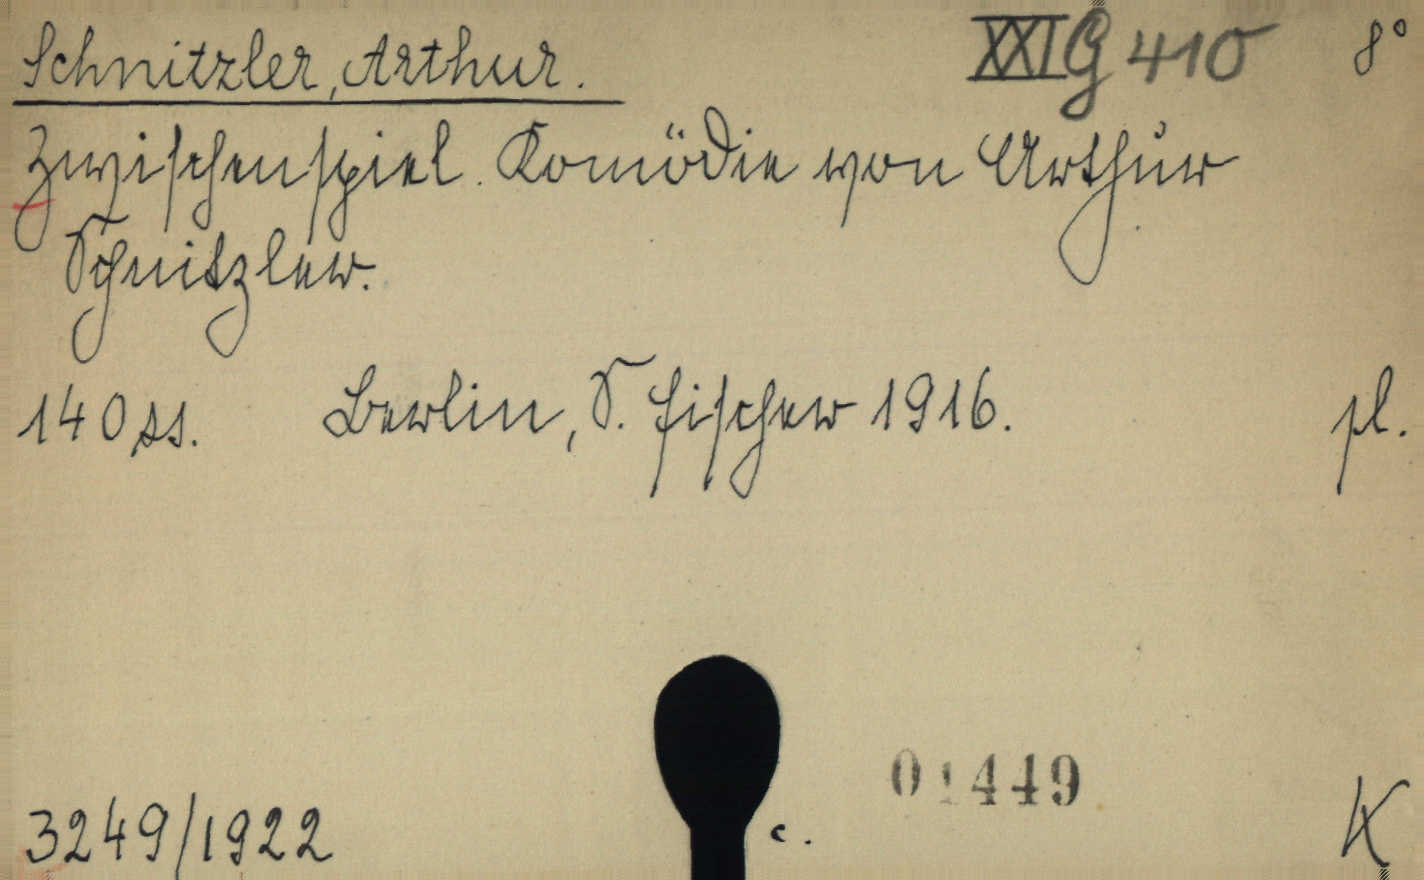 Schnitzler, Arthur. XXI G 410 8°
Zwischenspiel. Komödie von Arthur
Schnitzler.
140 ss. Berlin, S. Fischer 1916. pl.
01449
3249/1922 c. K